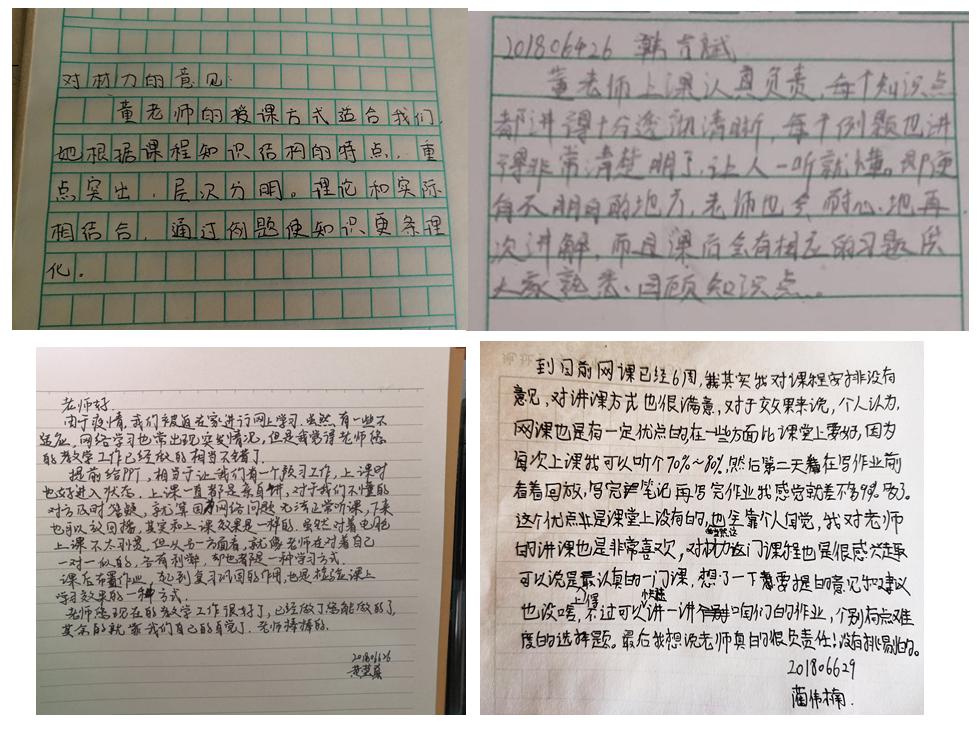 对材力的意见:
董老师的授课方式适合我们,
她根据课程知识结构的特点,重
点突出,层次分明。理论和实际
相结合,通过例题使知识更条理
化.
201806426 韩
董老师上课认真负责,每个知识点
都讲得十分透彻清晰,每个例题也讲
得非常清楚明了,让人一听就懂。即便
有不明白的地方,老师也会耐心地再
次讲解,而且课后会有相应的习题供
大家熟悉、回顾知识点.
老师好.
由于疫情,我们被迫在家进行网上学习.虽然有一些不
适应,网络学习也常出现突发情况,但是我觉得老师您
的教学工作已经做的相当不错了.
提前给PPT,相当于让我们有一个预习工作,上课时
也好进入状态,上课一直都是亲自讲,对于我们不懂的
地方及时答疑,就算因为网络问题无法正常听课,下来
也可以放回播,其实和上课效果是一样的.虽然对着电脑
上课不太习惯,但从另一方面看,就像老师在对着自己
一对一似的,各有利弊,却也都是一种学习方式.
课后布置作业,起到复习巩固的作用,也是检验课上
学习效果的一种方式.
老师您现在的教学工作很好了,已经做了您能做的了,
其余的就靠我们自己的自觉了.老师棒棒的.
201806626
到目前网课已经6周,我其实我对课程安排没有
意见,对讲课方式也很满意,对于效果来说,个人认为,
网课也是有一定优点的在一些方面比课堂上要好,因为
每次上课我可以听个70%~80%,然后第二天在写作业前
看看回放,写完笔记再写完作业我感觉就差不多98%了.
这个优点是课堂上没有的,也是靠个人自觉,我对老师
的讲课也是非常喜欢,对材力这门课程也是很感兴趣
可以说是最认真的一门课,想了一下要提的意见和建议
也没啥,不过可以上课快速讲一讲咱们的作业,个别有点难
度的选择题。最后我想说老师真的很负责任!没有挑剔的。
201806629
蔺伟楠.